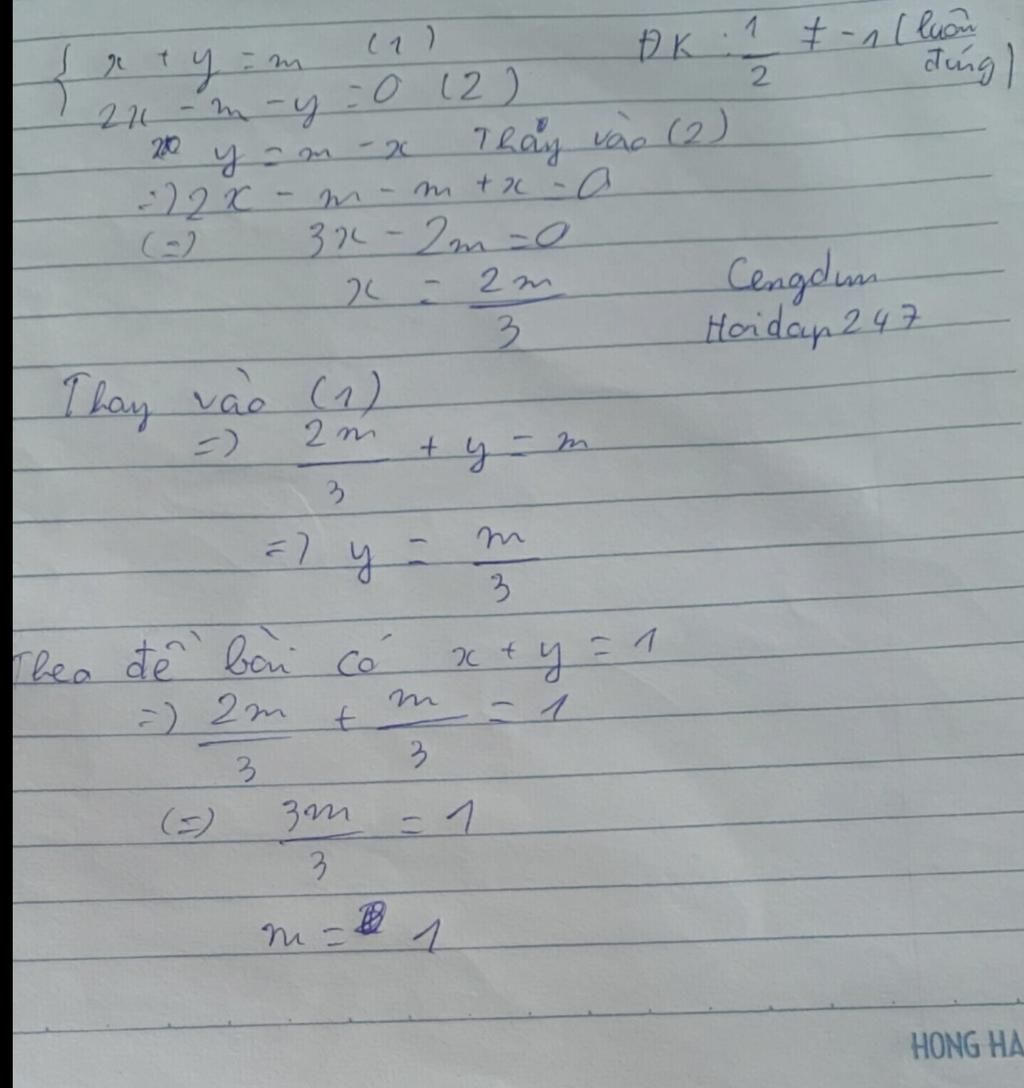 { x + y = m (1) ĐK : 1/2 ≠ -1 (luôn đúng)
2x - m - y = 0 (2)
y = m - x Thay vào (2)
=> 2x - m - m + x = 0
(=) 3x - 2m = 0
x = 2m/3
Cengdum
Hoidap247
Thay vào (1)
=> 2m/3 + y = m
=> y = m/3
Theo đề bài có x + y = 1
=> 2m/3 + m/3 = 1
(=) 3m/3 = 1
m = 1
HONG HA